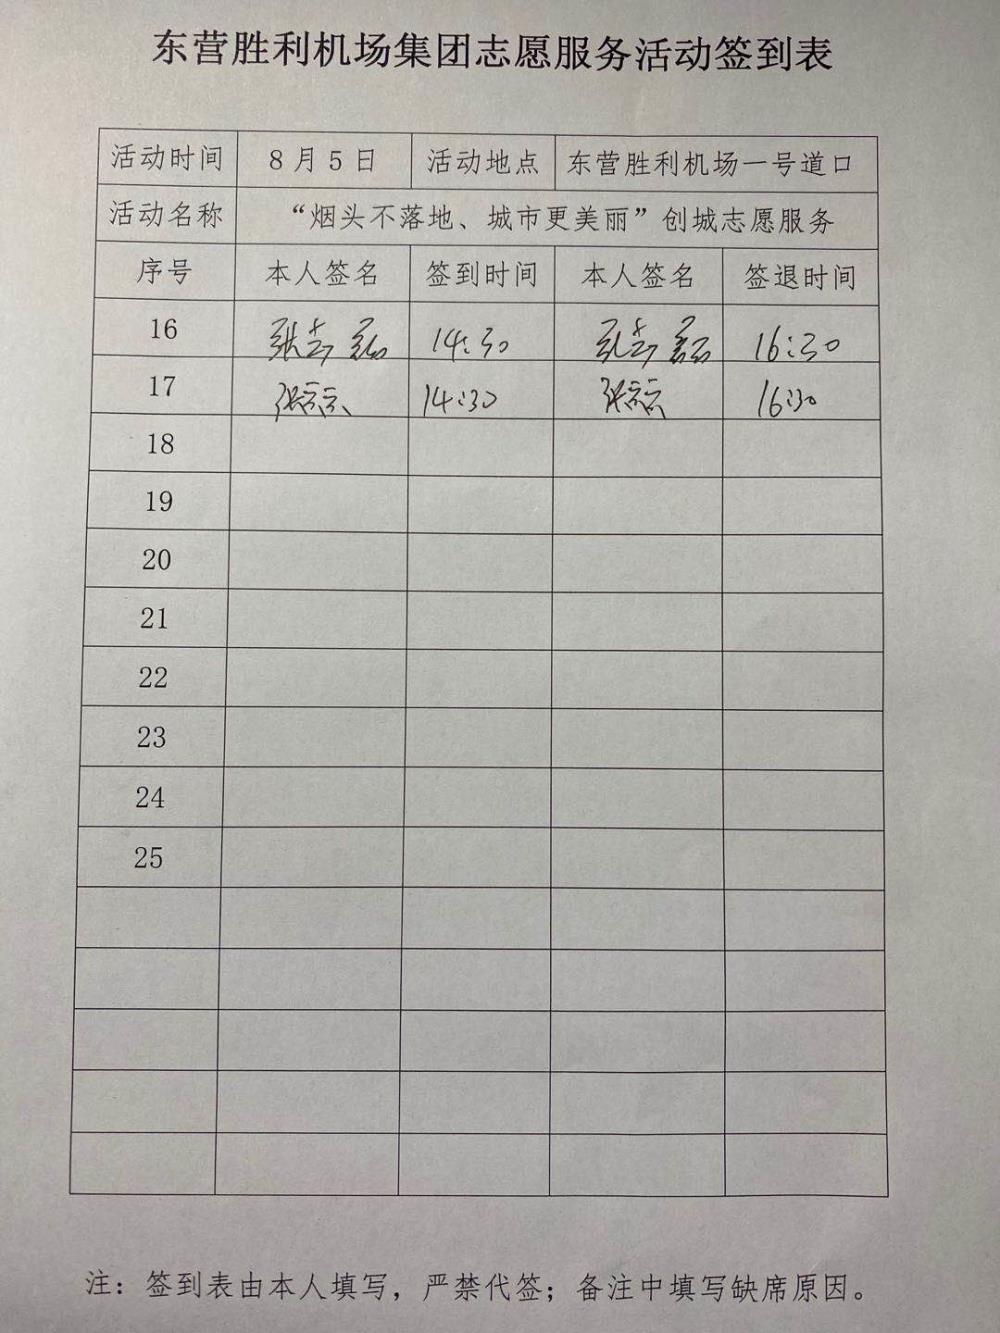 东营胜利机场集团志愿服务活动签到表
活动时间 8月5日 活动地点 东营胜利机场一号道口
活动名称 “烟头不落地、城市更美丽”创城志愿服务
序号 本人签名 签到时间 本人签名 签退时间
16 14:30 16:30
17 张 14:30 张 16:30
18
19
20
21
22
23
24
25
注：签到表由本人填写，严禁代签；备注中填写缺席原因。